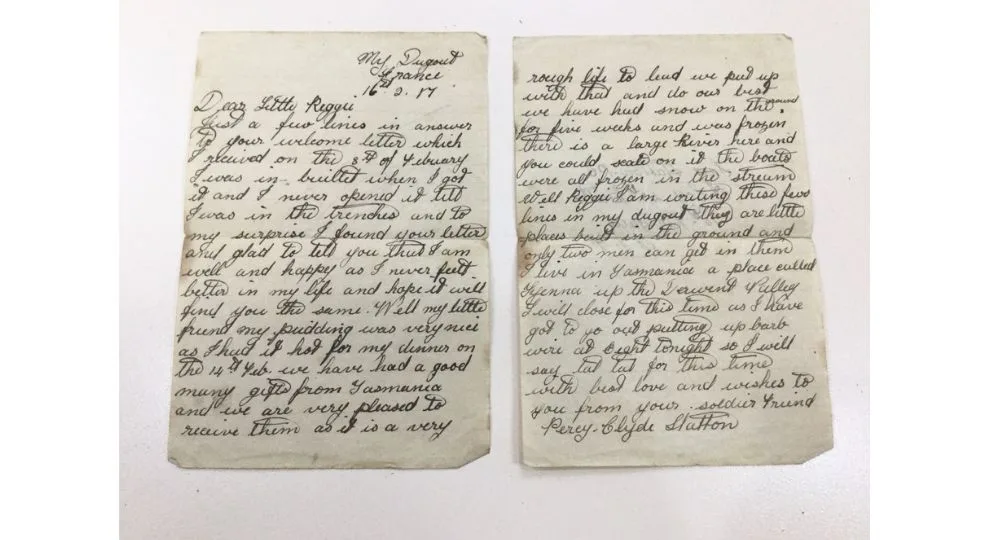 My Dugout
France
16th 2. 17.
Dear Little Reggie
Just a few lines in answer
to your welcome letter which
I received on the 8th of February
I was in builtet when I got
it and I never opened it till
I was in the trenches and to
my surprise I found your letter
and glad to tell you that I am
well and happy as I never felt
better in my life and hope it will
find you the same. Well my little
friend my pudding was very nice
as I had it hot for my dinner on
the 14th Feb. we have had a good
many gifts from Tasmania
and we are very pleased to
receive them as it is a very
rough life to lead we put up
with that and do our best
we have had snow on the ground
for five weeks and was frozen
there is a large River here and
you could scate on it the boats
were all frozen in the stream
Well Reggie I am writing these few
lines in my dugout they are little
places built in the ground and
only two men can get in them
I live in Tasmania a place called
Tyenna up the Derwent Valley
I will close for this time as I have
got to go out putting up barb
wire at eight tonight so I will
say tat tat for this time
with best love and wishes to
you from your soldier friend
Percy Clyde Statton